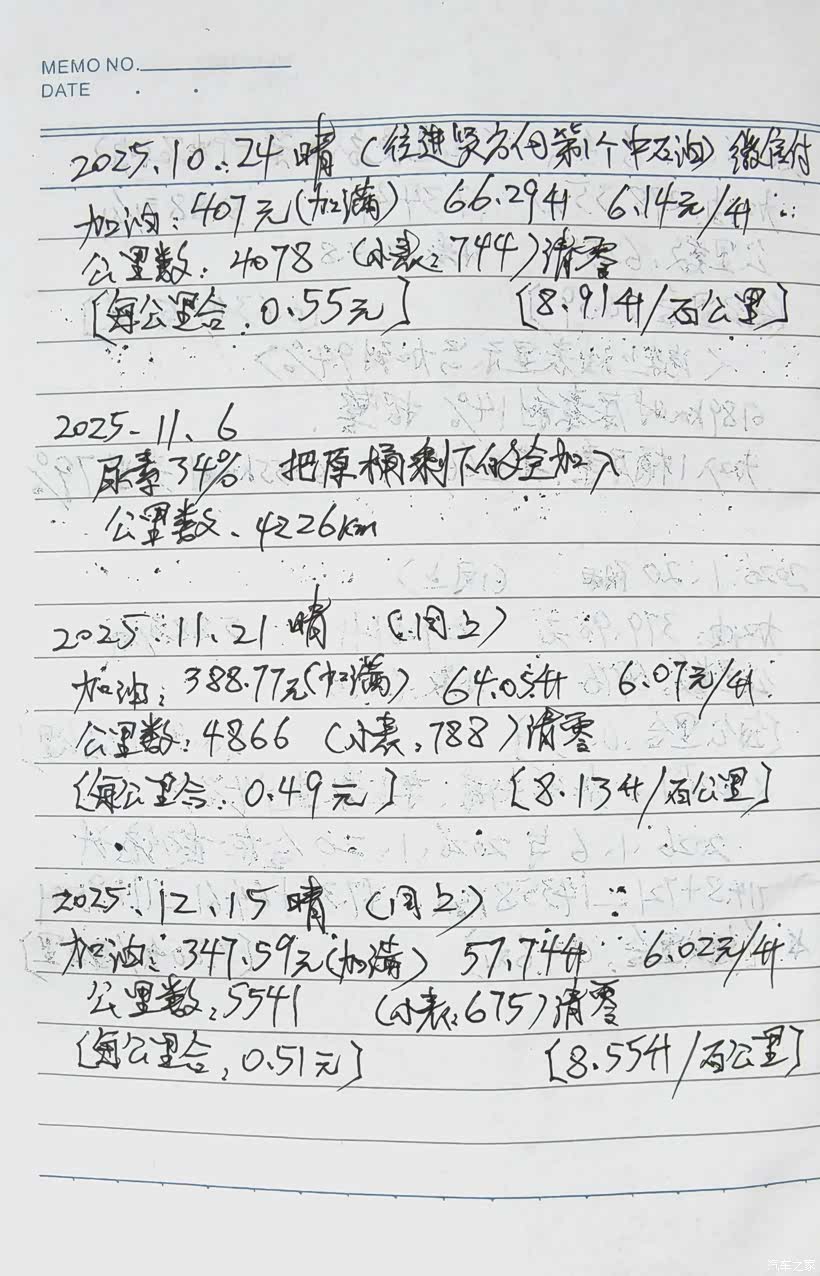 MEMO NO.
DATE . .
2025.10.24 晴 (往进贤方向第1个中石油) 微信付
加油: 407元(加满) 66.29升 6.14元/升
公里数: 4078 (小表: 744)清零
[每公里合: 0.55元] [8.91升/百公里]
2025-11.6
尿素34% 把原桶剩下的全加入
公里数: 4226km
2025.11.21 晴 (同上)
加油: 388.77元(加满) 64.05升 6.07元/升
公里数: 4866 (小表: 788)清零
[每公里合: 0.49元] [8.13升/百公里]
2025.12.15 晴 (同上)
加油: 347.59元(加满) 57.74升 6.02元/升
公里数: 5541 (小表: 675)清零
[每公里合: 0.51元] [8.55升/百公里]
汽车之家